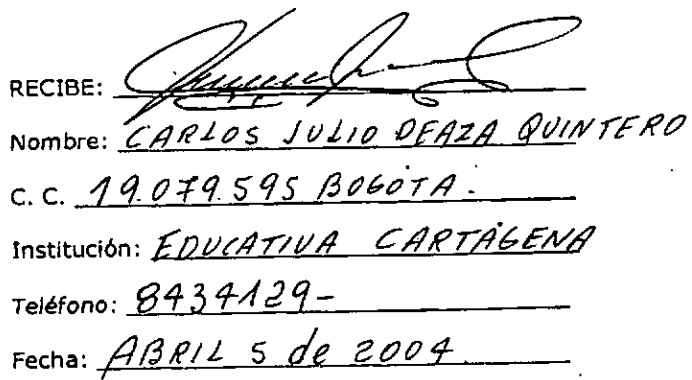 RECIBE:
Nombre: CARLOS JULIO DEAZA QUINTERO
C. C. 19.079.595 BOGOTA.
Institución: EDUCATIVA CARTÁGENA
Teléfono: 8434129-
Fecha: ABRIL 5 de 2004